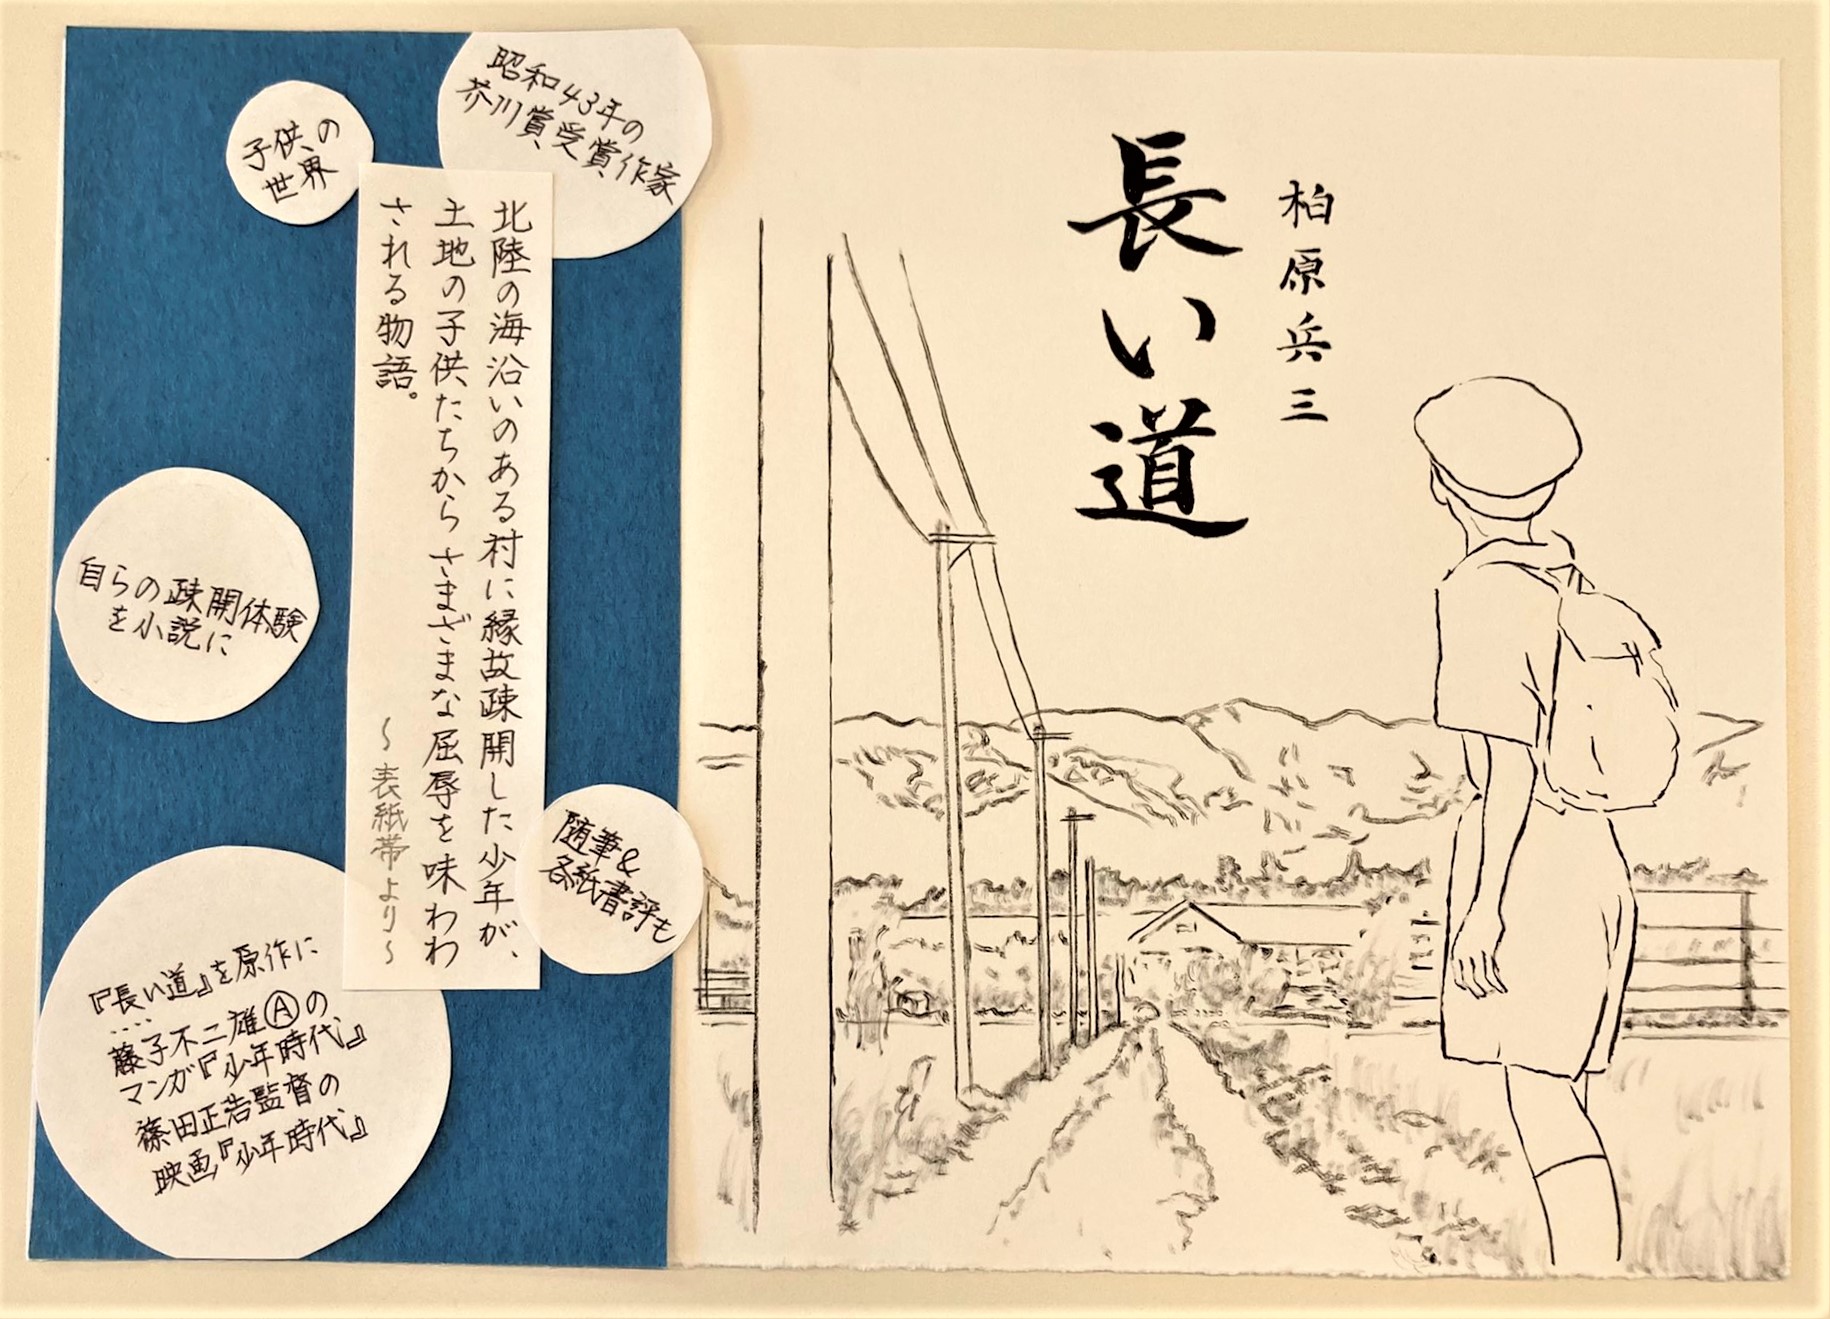 長い道
柏原兵三
昭和43年の
芥川賞受賞作家
子供の
世界
北陸の海沿いのある村に縁故疎開した少年が、
土地の子供たちからさまざまな屈辱を味わわ
される物語。
～表紙帯より～
自らの疎開体験
を小説に
随筆&
各紙書評も
『長い道』を原作に
‥‥
藤子不二雄Ⓐの
マンガ『少年時代』
篠田正浩監督の
映画『少年時代』